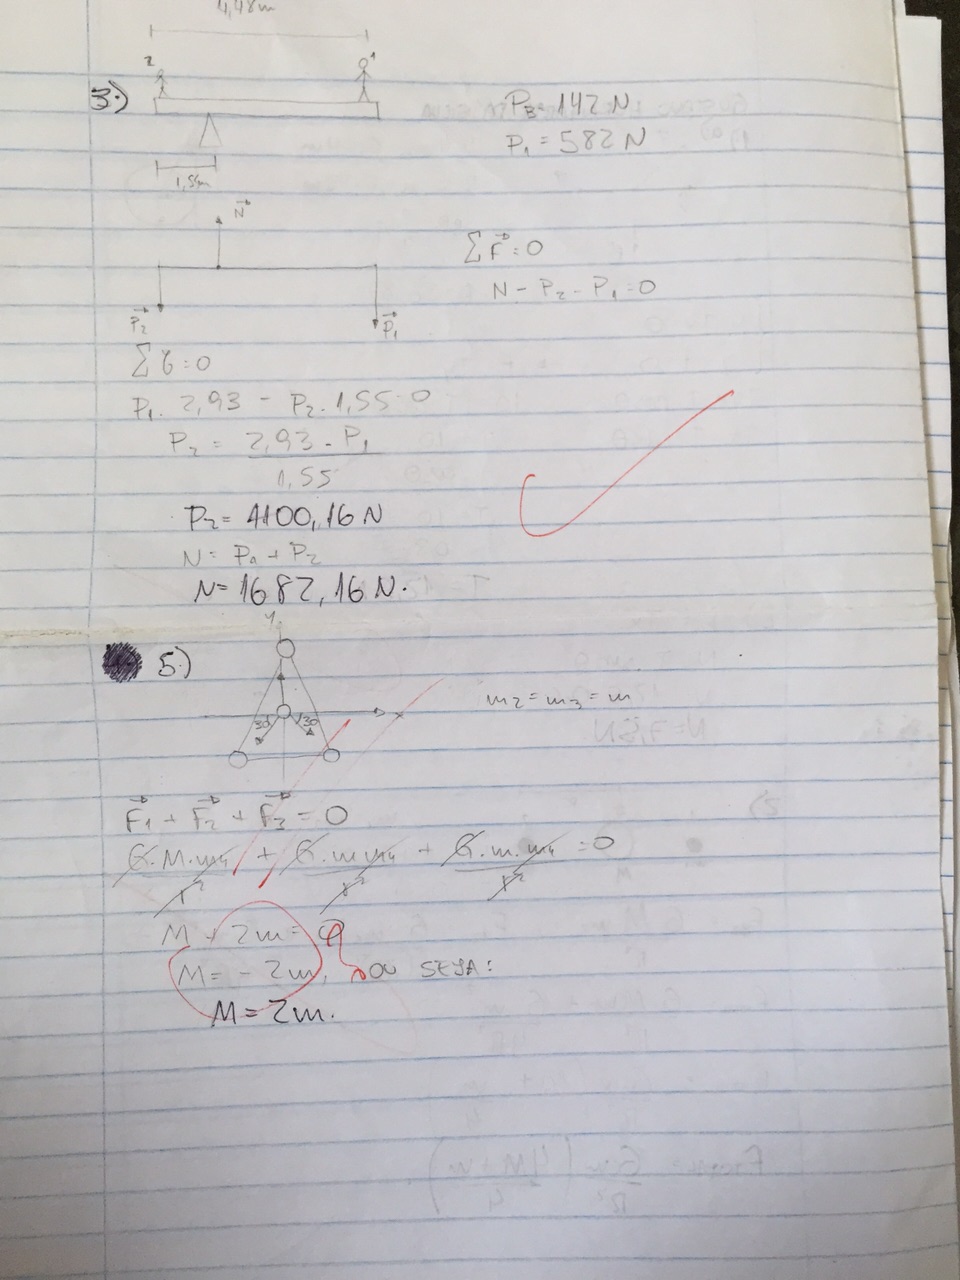 4,48m
2 1
3.)
P_B = 142 N
P₁ = 582 N
1,55m
N⃗
∑ F⃗ = 0
N - P₂ - P₁ = 0
P⃗₂ P⃗₁
∑ τ = 0
P₁ . 2,93 - P₂ . 1,55 = 0
P₂ = 2,93 . P₁
1,55
P₂ = 1100,16 N
N = P₁ + P₂
N = 1682,16 N.
y
5.)
m₂ = m₃ = m
30 30 x
F⃗₁ + F⃗₂ + F⃗₃ = 0
G.M.m₄ + G.m.m₄ + G.m.m₄ = 0
r² r² r²
M + 2m = 0
M = - 2m, OU SEJA:
M = 2m.